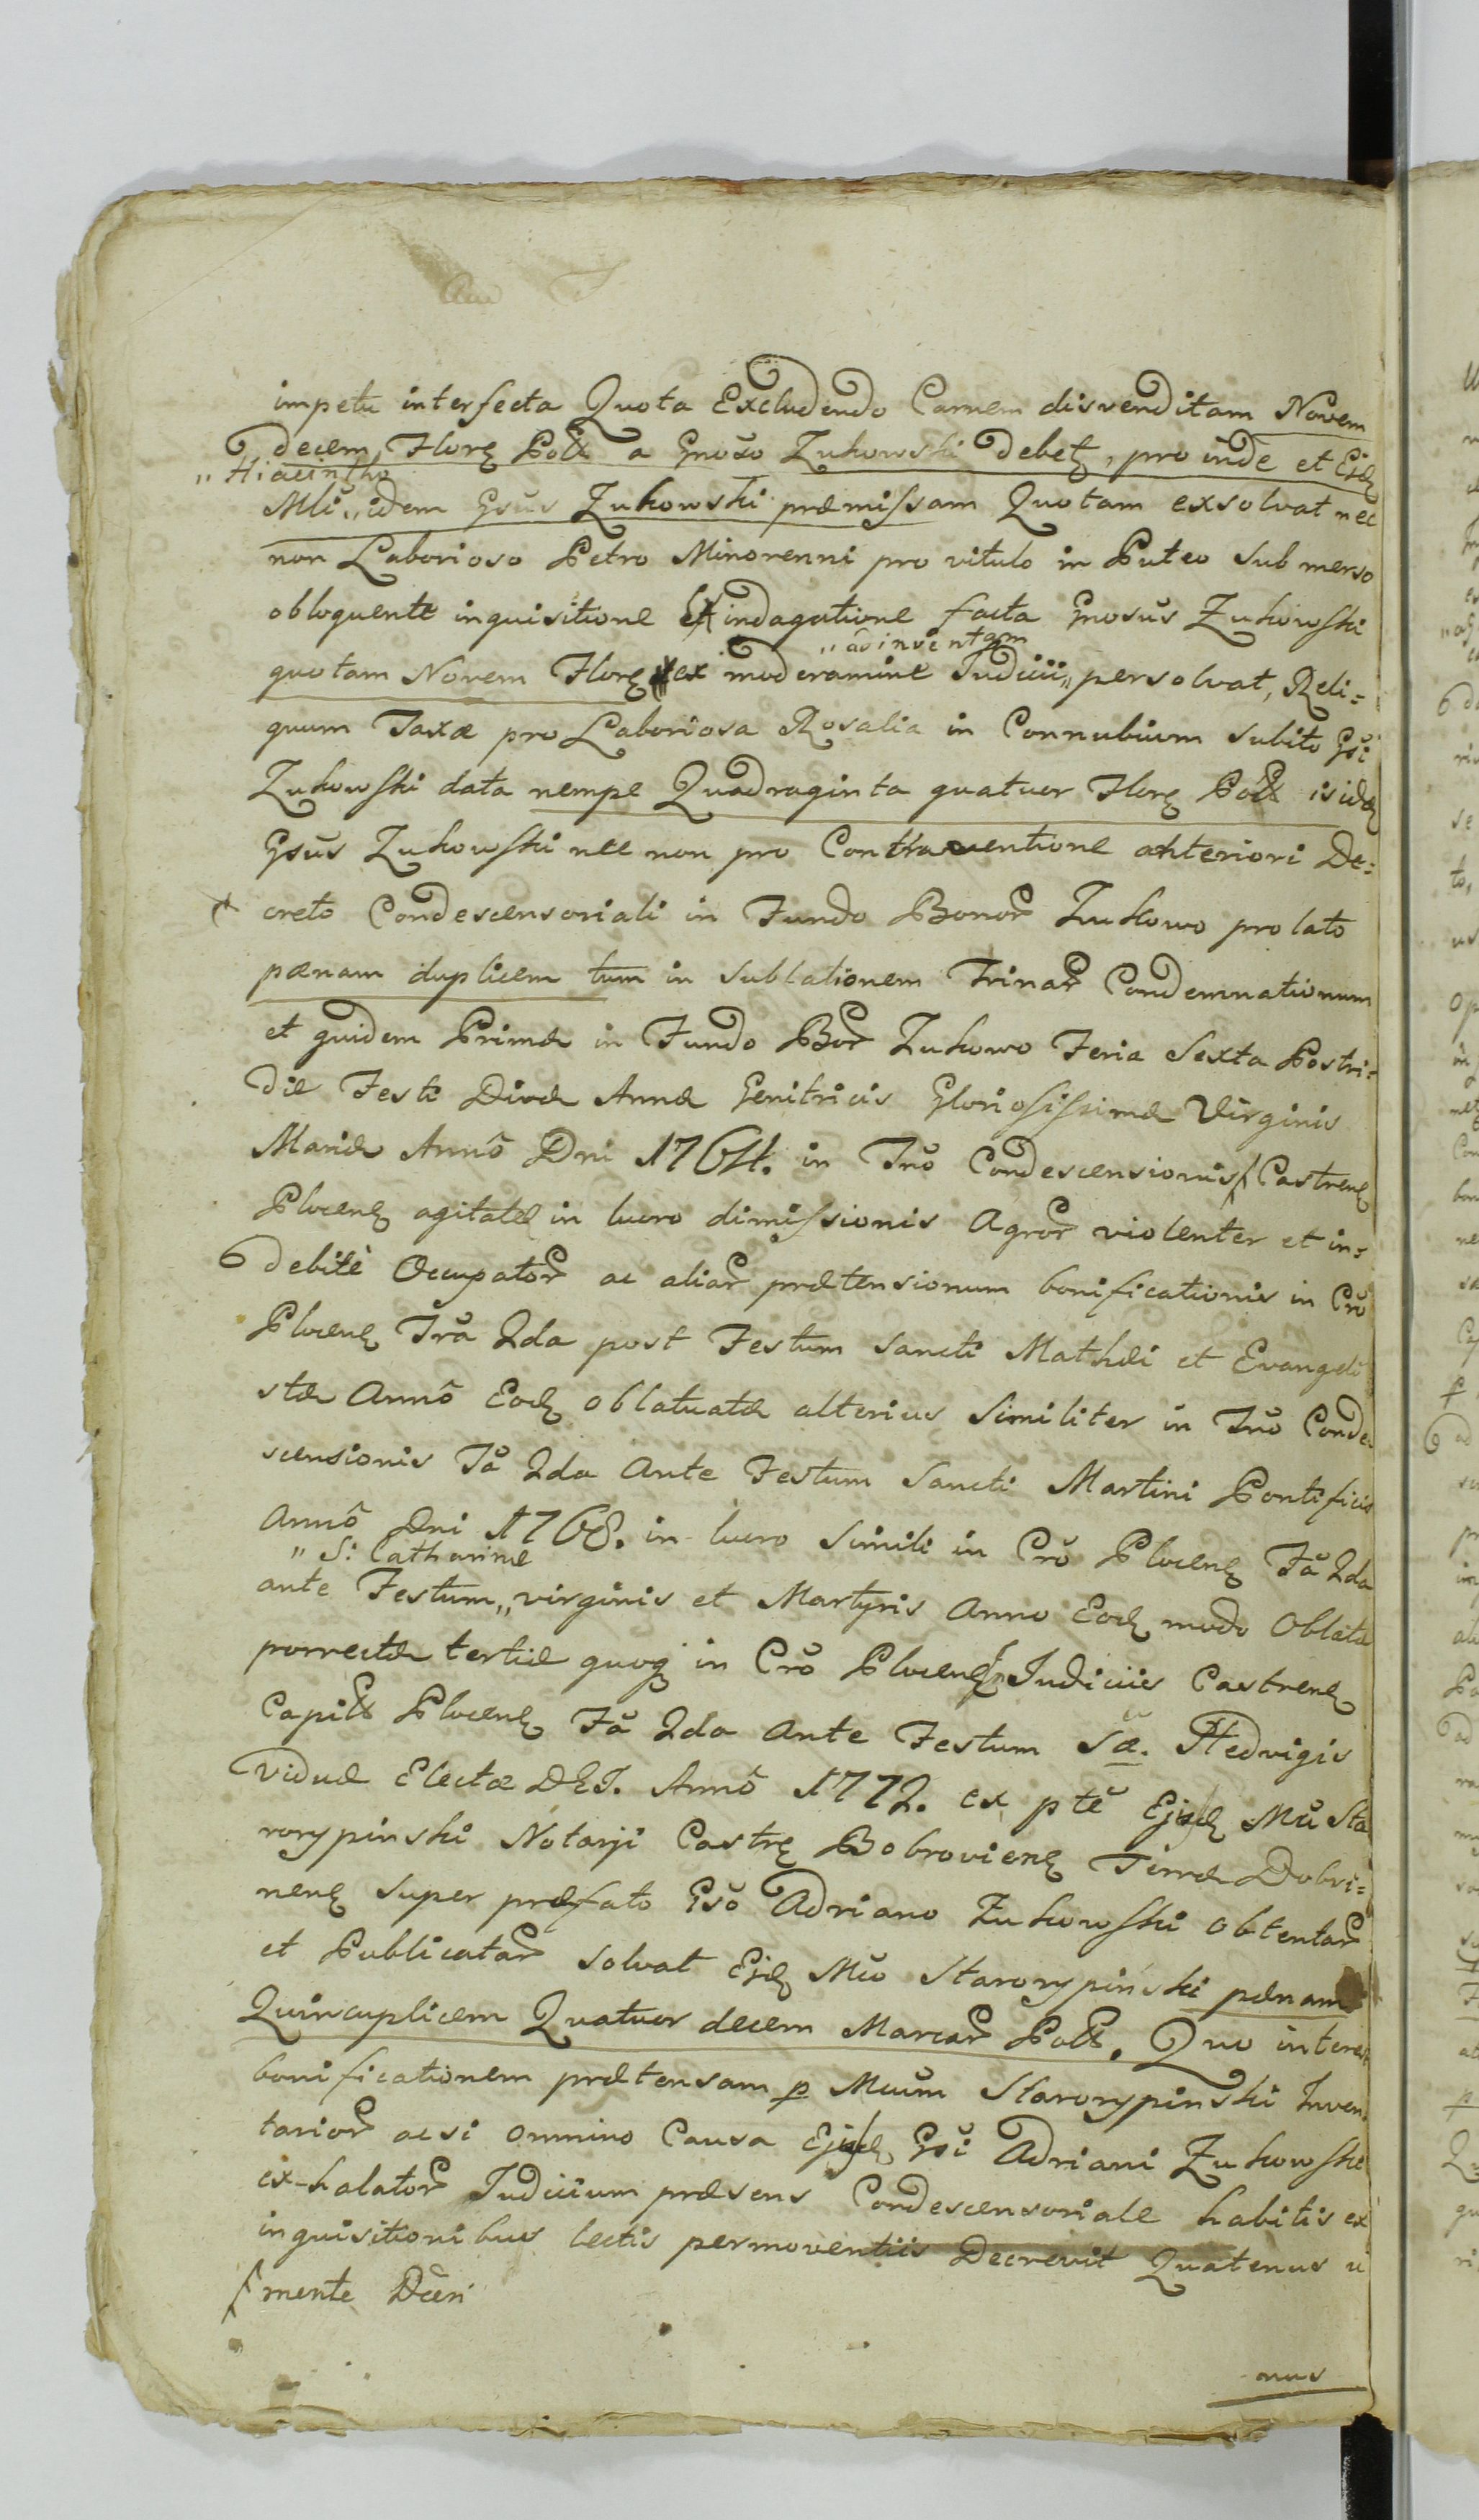 impetu interfecta Quota Excludendo Carnem disvenditam Novem
decem Floreꝫ Poll a Gnoso Zukowski debetꝫ, pro inde et Ejdꝫ
„Hiacintho
Mli„ idem Gsus Zukowski præmissam Quotam exsolvat nec
non Laborioso Petro Minorenni pro vitulo in Puteo Sub merso
obloquente inquisitione Et indagatione facta Gnosus Zukowski
„adinventam
quotam Novem Floreꝫ ex moderamine Judicii„ persolvat, Reli=
quum Taxæ pro Laboriosa Rosalia in Connubium subito Gsi
Zukowski data nempe Quadraginta quatuor Floreꝫ Poll isidꝫ
Gsus Zukowski nec non pro Contraventione anteriori De=
creto Condescensoriali in Fundo Bonor Zukowo pro lato
pænam duplicem tum in sublationem Trinar Condemnationum
et quidem Primæ in Fundo Bor Zukowo Feria Sexta Postri=
die Festi Divæ Annæ Genitricis Gloriosissimæ Virginis
Mariæ Annô Dni 1764. in Tnô Condescensionis Castrenꝫ
Plocenꝫ agitatæ in lucro dimissionis Agror violenter et in=
debitè Occupator ac aliar prætensionum bonificationis in Crô
Plocenꝫ Frâ 2da post Festum Sancti Mathæi et Evangeli
stæ Annô Eodꝫ oblatuatæ alterius Similiter in Tnô Conde
scensionis Fâ 2da Ante Festum Sancti Martini Pontificis
Annô Dni 1768. in lucro Simili in Crô Plocenꝫ Fâ 2da
„S: Catharinæ
ante Festum„ virginis et Martyris Anno Eodꝫ modo Oblatæ
porrectæ tertiæ quoqꝫ in Crô Plocenꝫ Judiciis Castrenꝫ
Capitl Plocenꝫ Fâ 2da Ante Festum Sæ. Hedvigis
Viduæ Electæ DEI. Annô 1772. ex ptê Ejsdꝫ Mŭ Sta
rorypinski Notarji Castrꝫ Bobrovienꝫ Terræ Dobri=
nenꝫ super præfato Gsŏ Adriano Zukowski obtentar
et Publicatar solvat Ejdꝫ Mŭo Starorypinski pænam
Quincuplicem Quatuor decem Marcar Poll. Quo interest
bonificationem prætensam p Mŭum Starorypinski Inven=
tarior acsi omnino Causa Ejsdꝫ Gsi Adriani Zukowski
ex-halator Judicium præsens Condescensoriale habitis ex
inquisitionibus lectis permoventiis Decrevit Quatenus u
mente Dcen
nus